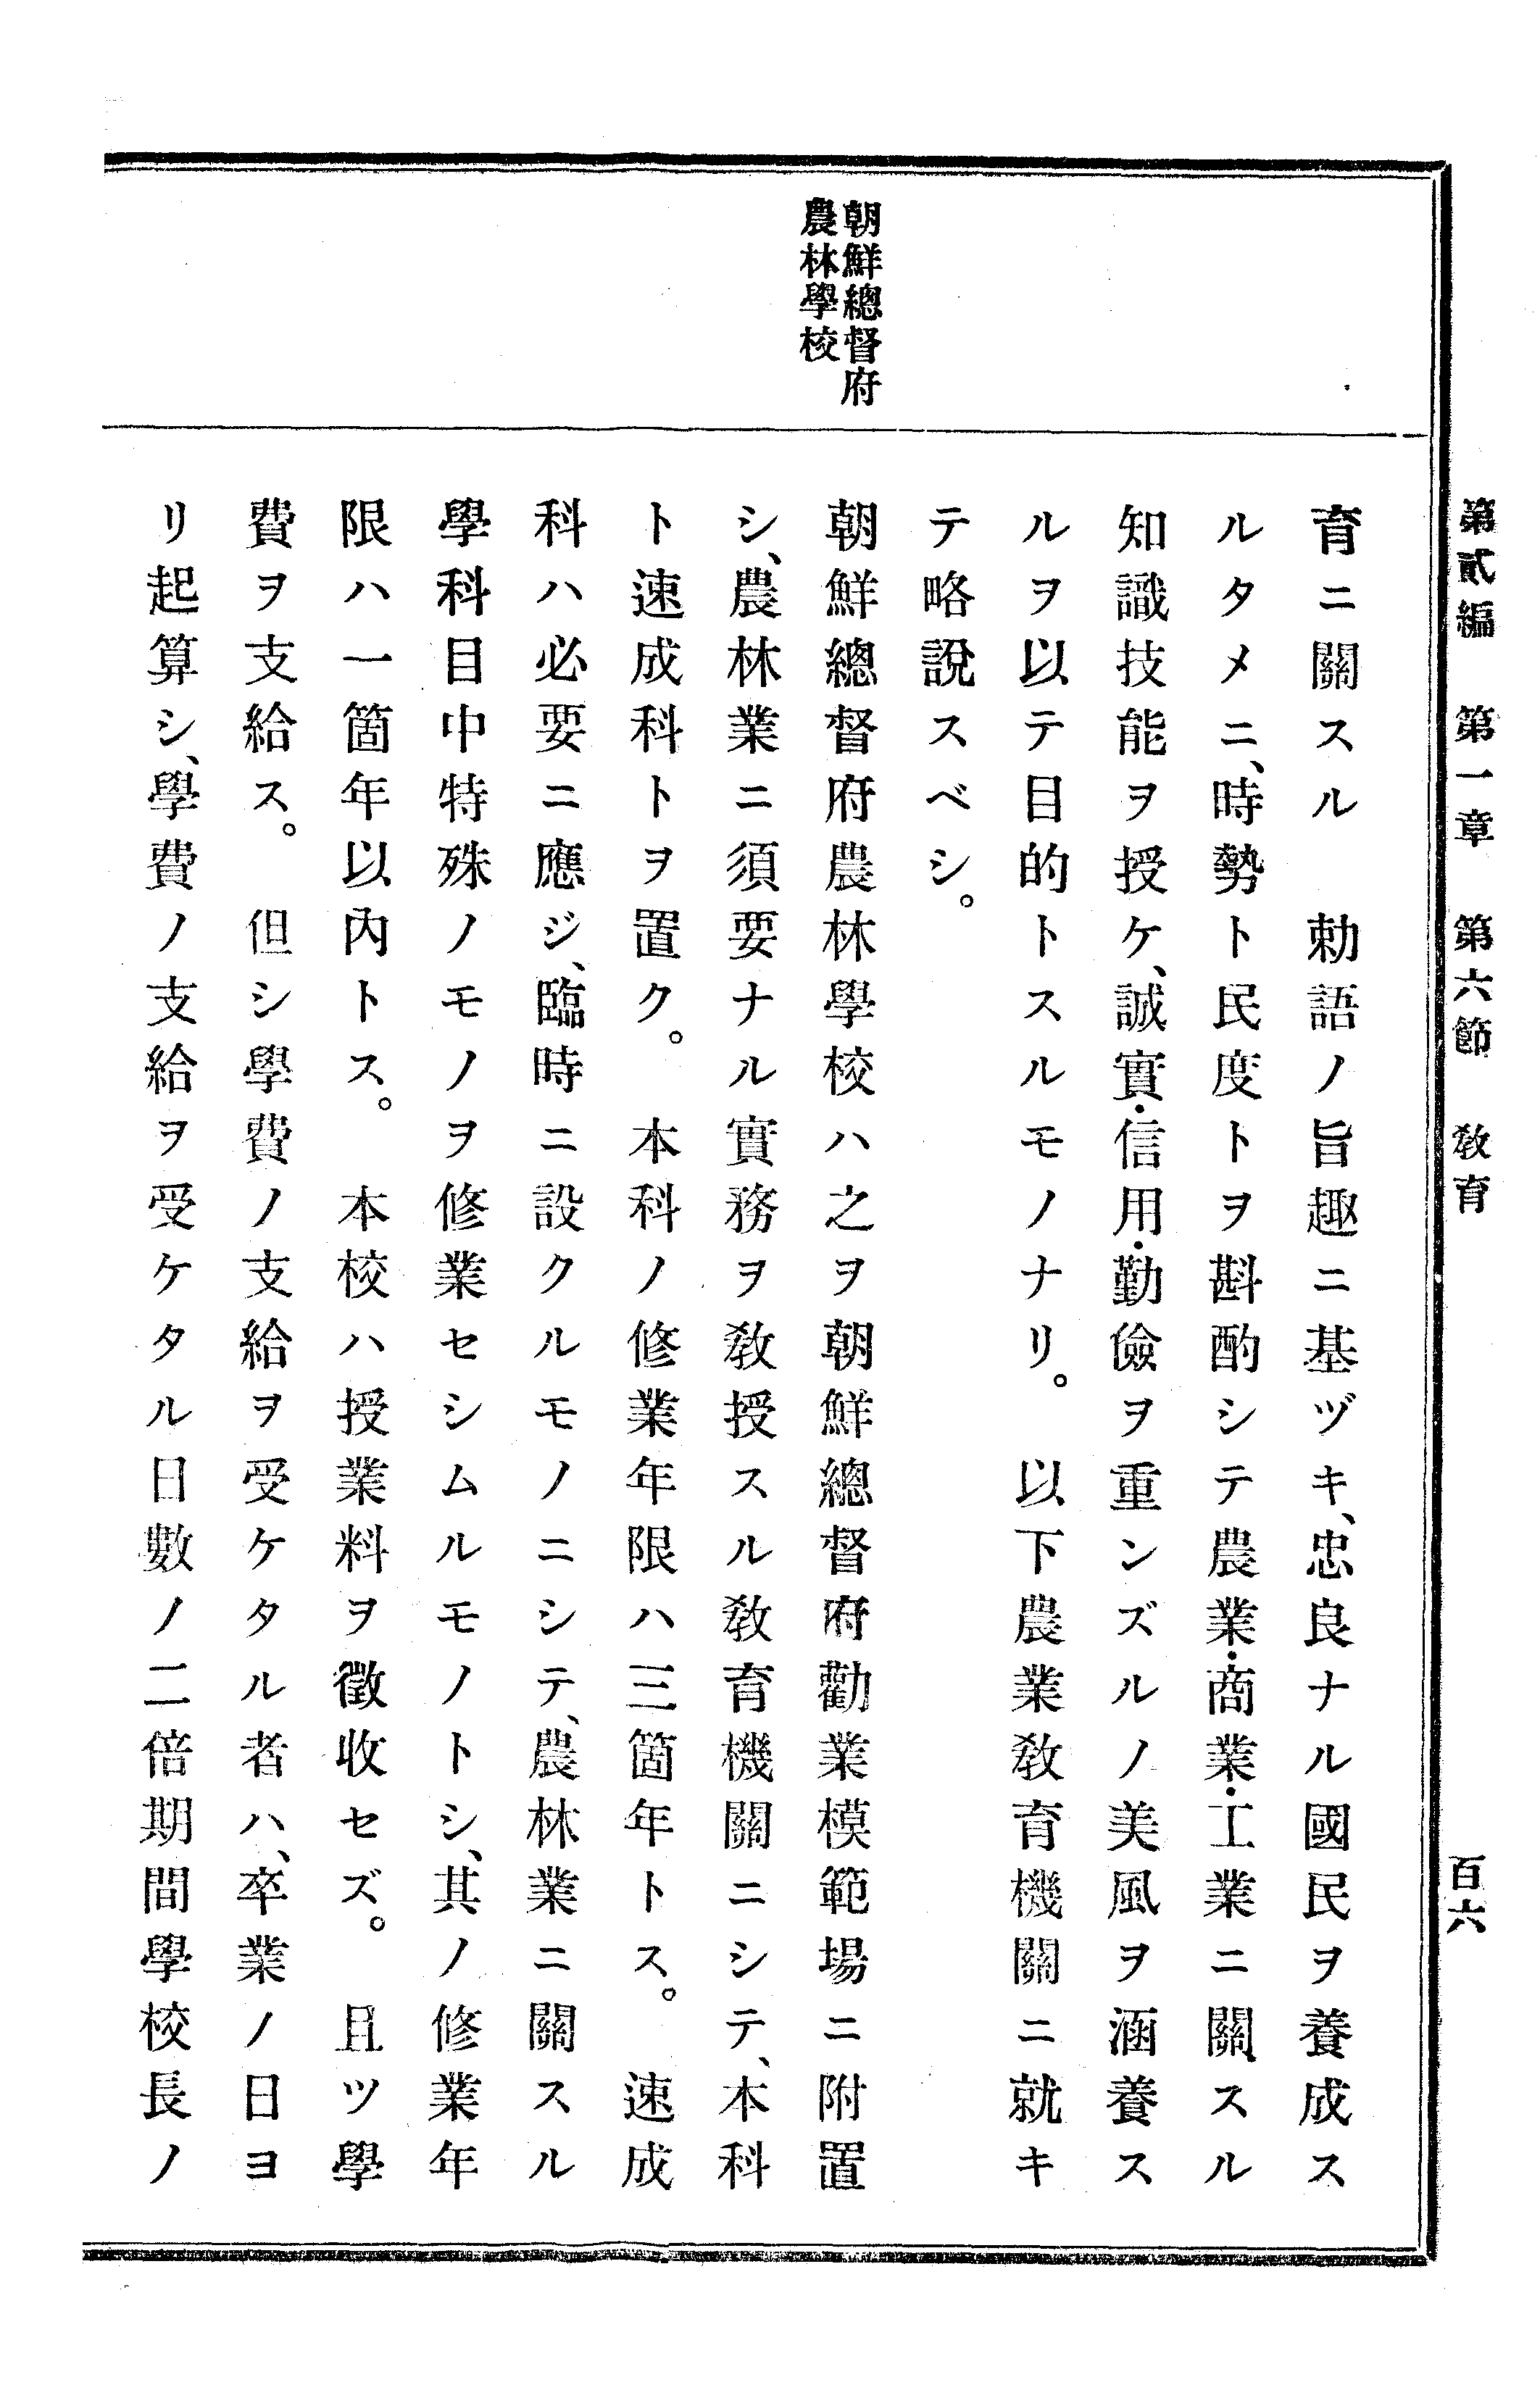 第貳編　第一章　第六節　敎育
百六
朝鮮總督府
農林學校
育ニ關スル　勅語ノ旨趣ニ基ヅキ、忠良ナル國民ヲ養成ス
ルタメニ、時勢ト民度トヲ斟酌シテ農業・商業・工業ニ關スル
知識技能ヲ授ケ、誠實・信用・勤儉ヲ重ンズルノ美風ヲ涵養ス
ルヲ以テ目的トスルモノナリ。　以下農業敎育機關ニ就キ
テ略說スベシ。
朝鮮總督府農林學校ハ之ヲ朝鮮總督府勸業模範場ニ附置
シ、農林業ニ須要ナル實務ヲ敎授スル敎育機關ニシテ、本科
ト速成科トヲ置ク。　本科ノ修業年限ハ三箇年トス。　速成
科ハ必要ニ應ジ、臨時ニ設クルモノニシテ、農林業ニ關スル
學科目中特殊ノモノヲ修業セシムルモノトシ、其ノ修業年
限ハ一箇年以內トス。　本校ハ授業料ヲ徵收セズ。　且ツ學
費ヲ支給ス。　但シ學費ノ支給ヲ受ケタル者ハ、卒業ノ日ヨ
リ起算シ、學費ノ支給ヲ受ケタル日數ノ二倍期間學校長ノ